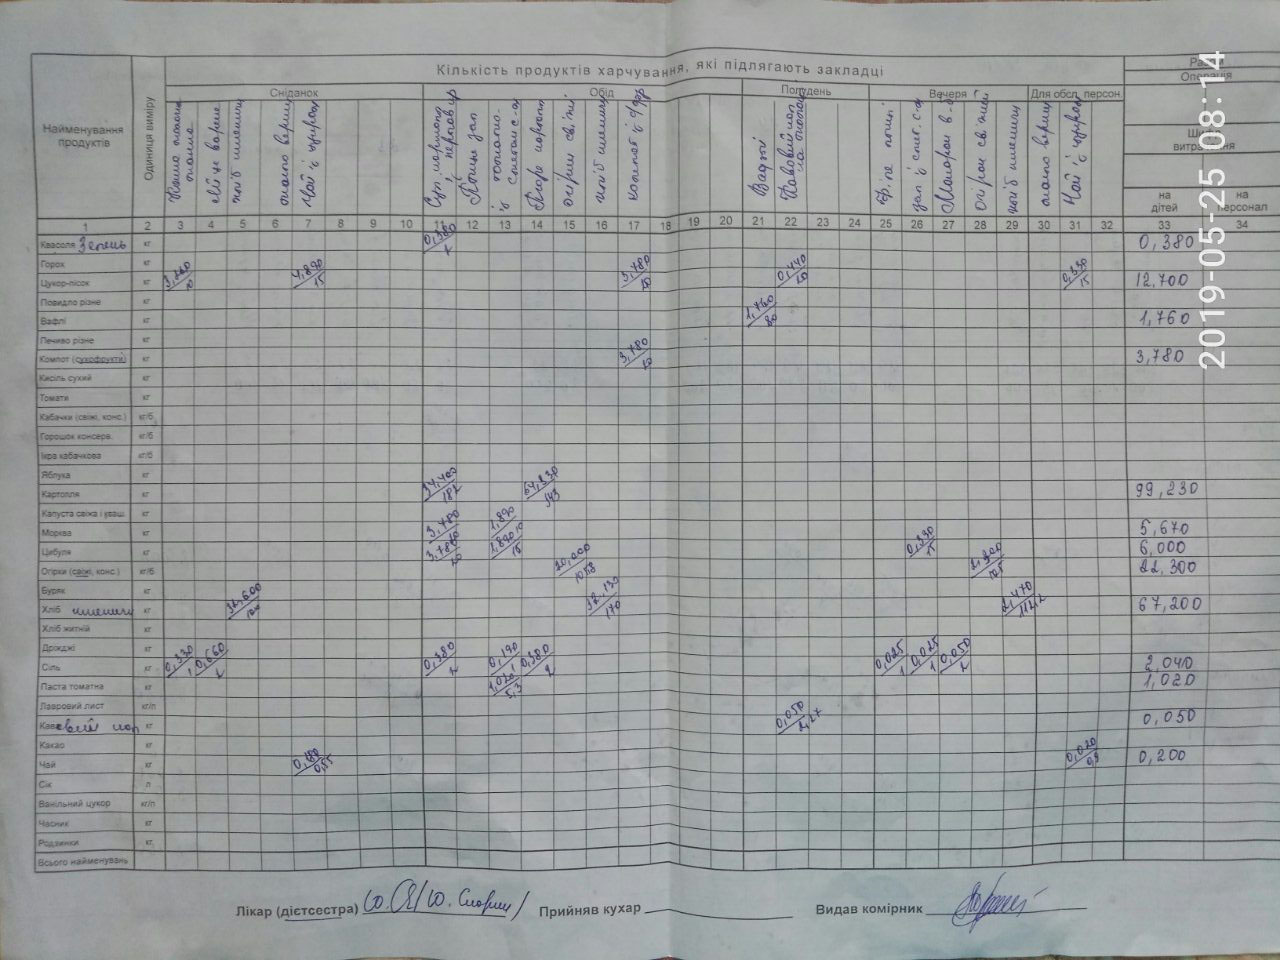 Кількість продуктів харчування, які підлягають закладці
Найменування продуктів
Одиниця виміру
Сніданок
Обід
Полудень
Вечеря
Для обсл. персон.
Операція
на дітей
на персонал
яйце варене
хліб пшенич
чай з цукром
Пюре картоп
огірки свіжі
хліб пшенич
компот з с/фр
Вафлі
Огірки свіжі
хліб пшенич
Чай з цукром
1 2 3 4 5 6 7 8 9 10 11 12 13 14 15 16 17 18 19 20 21 22 23 24 25 26 27 28 29 30 31 32 33 34
Квасоля Зелень кг 0,380 0,380
Горох кг
Цукор-пісок кг 4,890/15 3,780/20 0,440/20 0,330/15 12,700
Повидло різне кг
Вафлі кг 1,760/80 1,760
Печиво різне кг
Компот (сухофрукти) кг 3,780/20 3,780
Кисіль сухий кг
Томати кг
Кабачки (свіжі, конс.) кг/б
Горошок консерв. кг/б
Ікра кабачкова кг/б
Яблука кг
Картопля кг 34,400/182 64,830/343 99,230
Капуста свіжа і кваш. кг
Морква кг 3,780 1,890/10 5,670
Цибуля кг 3,780/20 1,890/10 0,330/15 6,000
Огірки (свіжі, конс.) кг/б 20,000/105,8 2,300/105 22,300
Буряк кг
Хліб пшенич кг 32,600/100 32,130/170 2,470/112,2 67,200
Хліб житній кг
Дріжджі кг
Сіль кг 0,330/1 0,660/2 0,380/2 0,190/1 0,380/2 0,025/1 0,025/1 0,050/2 2,040
Паста томатна кг 1,020/5,3 1,020
Лавровий лист кг/п
Кавовий нап кг 0,050/2,27 0,050
Какао кг
Чай кг 0,180/0,55 0,020/0,9 0,200
Сік л
Ванільний цукор кг/п
Часник кг
Родзинки кг.
Всього найменувань
Лікар (дієтсестра)
Прийняв кухар
Видав комірник
2019-05-25 08:14